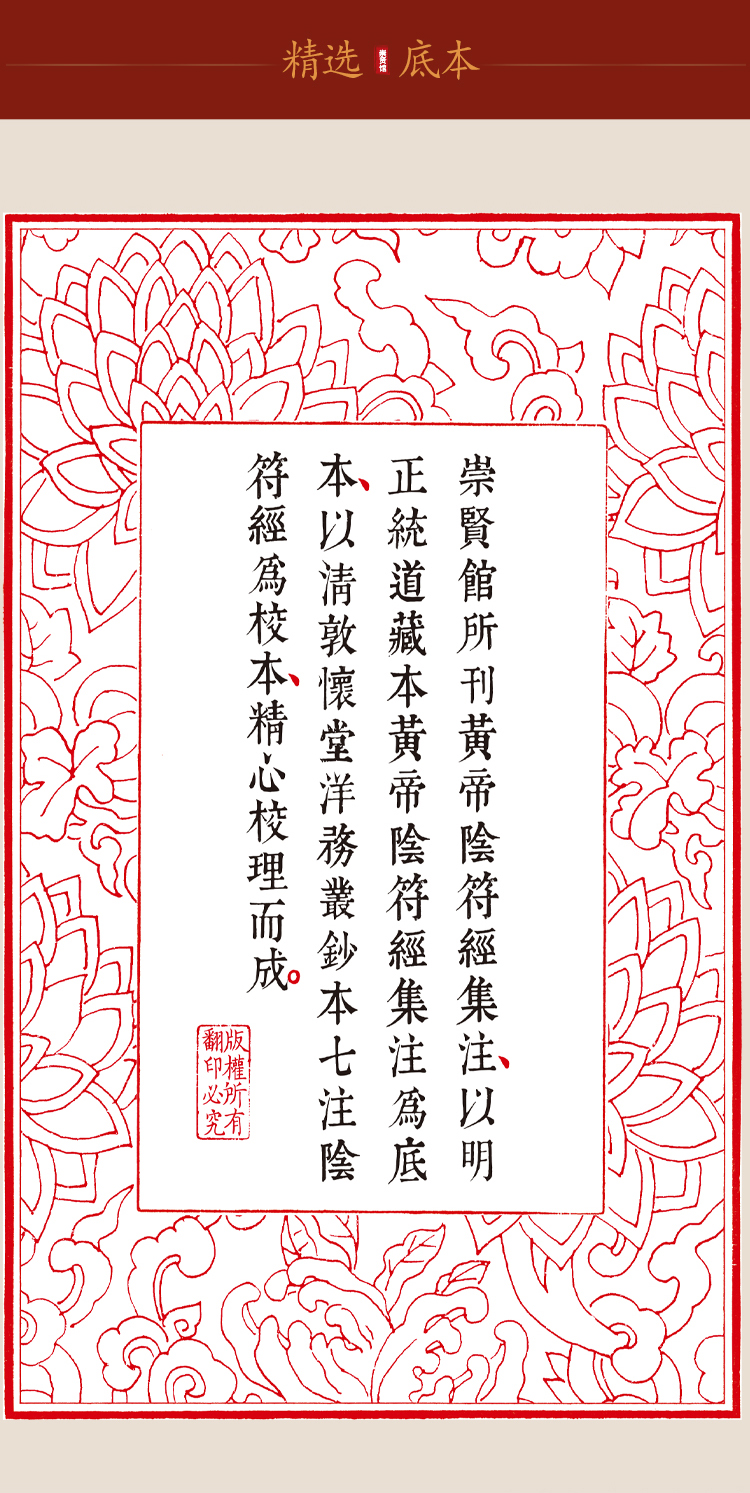 精选 崇贤馆 底本
崇賢館所刊黃帝陰符經集注、以明
正統道藏本黃帝陰符經集注爲底
本、以清敦懷堂洋務叢鈔本七注陰
符經爲校本、精心校理而成。
版權所有
翻印必究